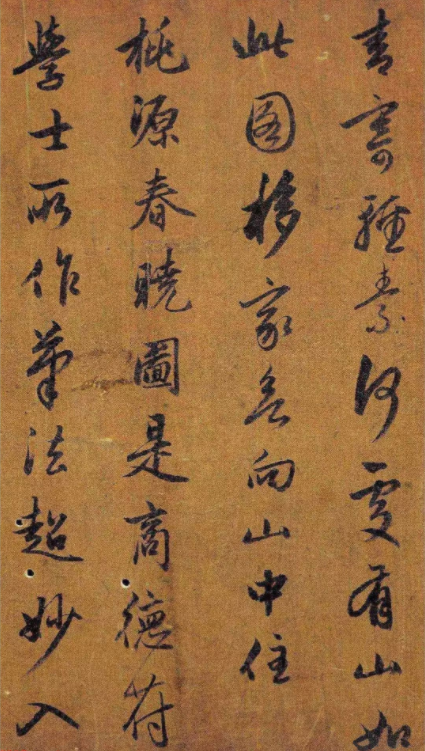 青寄輕素何處有山如
此圖移家欲向山中住
桃源春曉圖是商德符
學士所作筆法超妙入